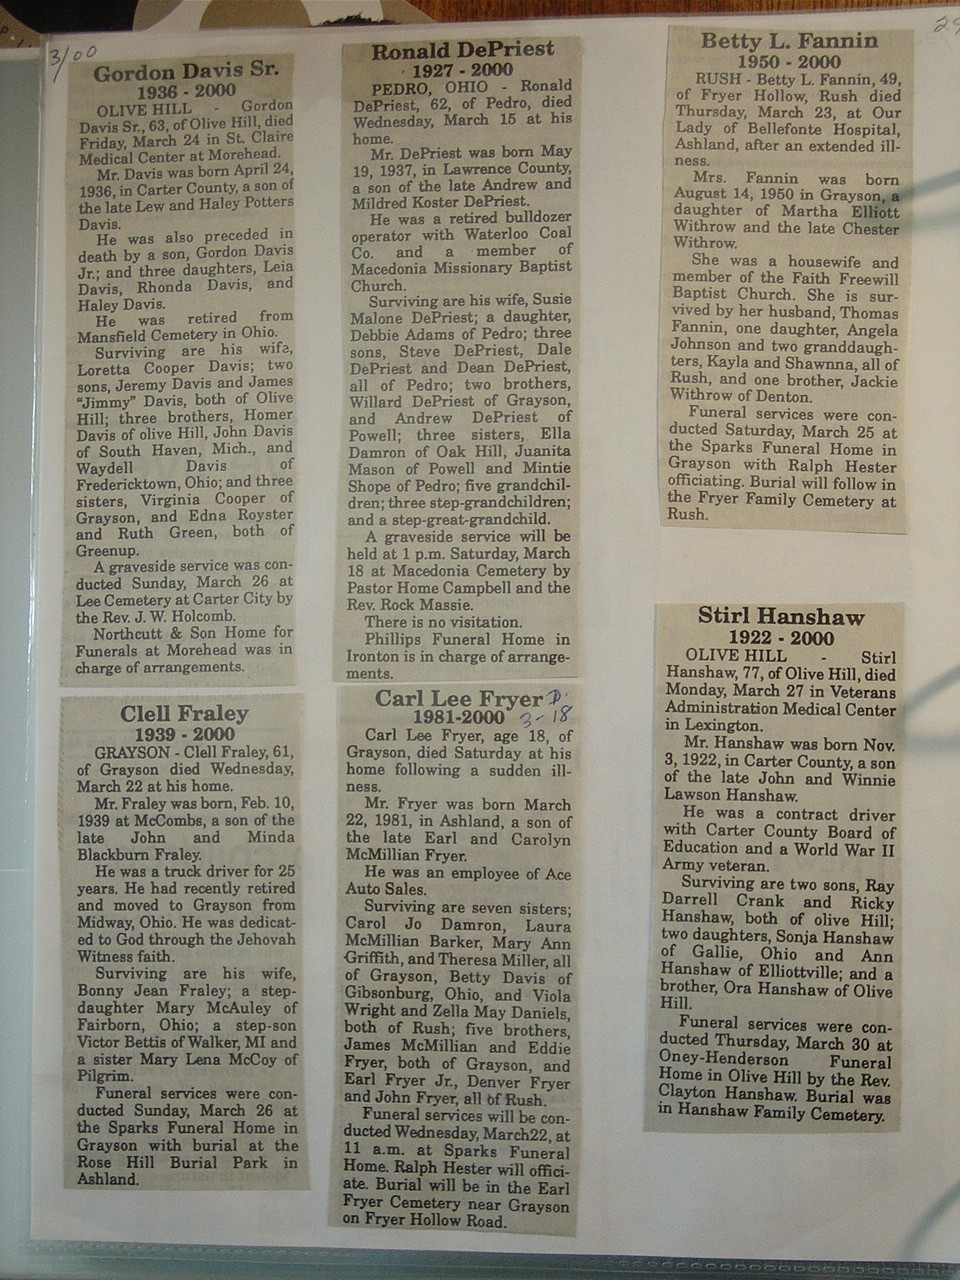 3/00
Gordon Davis Sr.
1936 - 2000
OLIVE HILL - Gordon
Davis Sr., 63, of Olive Hill, died
Friday, March 24 in St. Claire
Medical Center at Morehead.
Mr. Davis was born April 24,
1936, in Carter County, a son of
the late Lew and Haley Potters
Davis.
He was also preceded in
death by a son, Gordon Davis
Jr.; and three daughters, Leia
Davis, Rhonda Davis, and
Haley Davis.
He was retired from
Mansfield Cemetery in Ohio.
Surviving are his wife,
Loretta Cooper Davis; two
sons, Jeremy Davis and James
"Jimmy" Davis, both of Olive
Hill; three brothers, Homer
Davis of olive Hill, John Davis
of South Haven, Mich., and
Waydell Davis of
Fredericktown, Ohio; and three
sisters, Virginia Cooper of
Grayson, and Edna Royster
and Ruth Green, both of
Greenup.
A graveside service was con-
ducted Sunday, March 26 at
Lee Cemetery at Carter City by
the Rev. J. W. Holcomb.
Northcutt & Son Home for
Funerals at Morehead was in
charge of arrangements.
Clell Fraley
1939 - 2000
GRAYSON - Clell Fraley, 61,
of Grayson died Wednesday,
March 22 at his home.
Mr. Fraley was born, Feb. 10,
1939 at McCombs, a son of the
late John and Minda
Blackburn Fraley.
He was a truck driver for 25
years. He had recently retired
and moved to Grayson from
Midway, Ohio. He was dedicat-
ed to God through the Jehovah
Witness faith.
Surviving are his wife,
Bonny Jean Fraley; a step-
daughter Mary McAuley of
Fairborn, Ohio; a step-son
Victor Bettis of Walker, MI and
a sister Mary Lena McCoy of
Pilgrim.
Funeral services were con-
ducted Sunday, March 26 at
the Sparks Funeral Home in
Grayson with burial at the
Rose Hill Burial Park in
Ashland.
Ronald DePriest
1927 - 2000
PEDRO, OHIO - Ronald
DePriest, 62, of Pedro, died
Wednesday, March 15 at his
home.
Mr. DePriest was born May
19, 1937, in Lawrence County,
a son of the late Andrew and
Mildred Koster DePriest.
He was a retired bulldozer
operator with Waterloo Coal
Co. and a member of
Macedonia Missionary Baptist
Church.
Surviving are his wife, Susie
Malone DePriest; a daughter,
Debbie Adams of Pedro; three
sons, Steve DePriest, Dale
DePriest and Dean DePriest,
all of Pedro; two brothers,
Willard DePriest of Grayson,
and Andrew DePriest of
Powell; three sisters, Ella
Damron of Oak Hill, Juanita
Mason of Powell and Mintie
Shope of Pedro; five grandchil-
dren; three step-grandchildren;
and a step-great-grandchild.
A graveside service will be
held at 1 p.m. Saturday, March
18 at Macedonia Cemetery by
Pastor Home Campbell and the
Rev. Rock Massie.
There is no visitation.
Phillips Funeral Home in
Ironton is in charge of arrange-
ments.
Carl Lee Fryer D.
1981-2000 3-18
Carl Lee Fryer, age 18, of
Grayson, died Saturday at his
home following a sudden ill-
ness.
Mr. Fryer was born March
22, 1981, in Ashland, a son of
the late Earl and Carolyn
McMillian Fryer.
He was an employee of Ace
Auto Sales.
Surviving are seven sisters;
Carol Jo Damron, Laura
McMillian Barker, Mary Ann
Griffith, and Theresa Miller, all
of Grayson, Betty Davis of
Gibsonburg, Ohio, and Viola
Wright and Zella May Daniels,
both of Rush; five brothers,
James McMillian and Eddie
Fryer, both of Grayson, and
Earl Fryer Jr., Denver Fryer
and John Fryer, all of Rush.
Funeral services will be con-
ducted Wednesday, March22, at
11 a.m. at Sparks Funeral
Home. Ralph Hester will offici-
ate. Burial will be in the Earl
Fryer Cemetery near Grayson
on Fryer Hollow Road.
Betty L. Fannin
1950 - 2000
RUSH - Betty L. Fannin, 49,
of Fryer Hollow, Rush died
Thursday, March 23, at Our
Lady of Bellefonte Hospital,
Ashland, after an extended ill-
ness.
Mrs. Fannin was born
August 14, 1950 in Grayson, a
daughter of Martha Elliott
Withrow and the late Chester
Withrow.
She was a housewife and
member of the Faith Freewill
Baptist Church. She is sur-
vived by her husband, Thomas
Fannin, one daughter, Angela
Johnson and two granddaugh-
ters, Kayla and Shawnna, all of
Rush, and one brother, Jackie
Withrow of Denton.
Funeral services were con-
ducted Saturday, March 25 at
the Sparks Funeral Home in
Grayson with Ralph Hester
officiating. Burial will follow in
the Fryer Family Cemetery at
Rush.
Stirl Hanshaw
1922 - 2000
OLIVE HILL - Stirl
Hanshaw, 77, of Olive Hill, died
Monday, March 27 in Veterans
Administration Medical Center
in Lexington.
Mr. Hanshaw was born Nov.
3, 1922, in Carter County, a son
of the late John and Winnie
Lawson Hanshaw.
He was a contract driver
with Carter County Board of
Education and a World War II
Army veteran.
Surviving are two sons, Ray
Darrell Crank and Ricky
Hanshaw, both of olive Hill;
two daughters, Sonja Hanshaw
of Gallie, Ohio and Ann
Hanshaw of Elliottville; and a
brother, Ora Hanshaw of Olive
Hill.
Funeral services were con-
ducted Thursday, March 30 at
Oney-Henderson Funeral
Home in Olive Hill by the Rev.
Clayton Hanshaw. Burial was
in Hanshaw Family Cemetery.